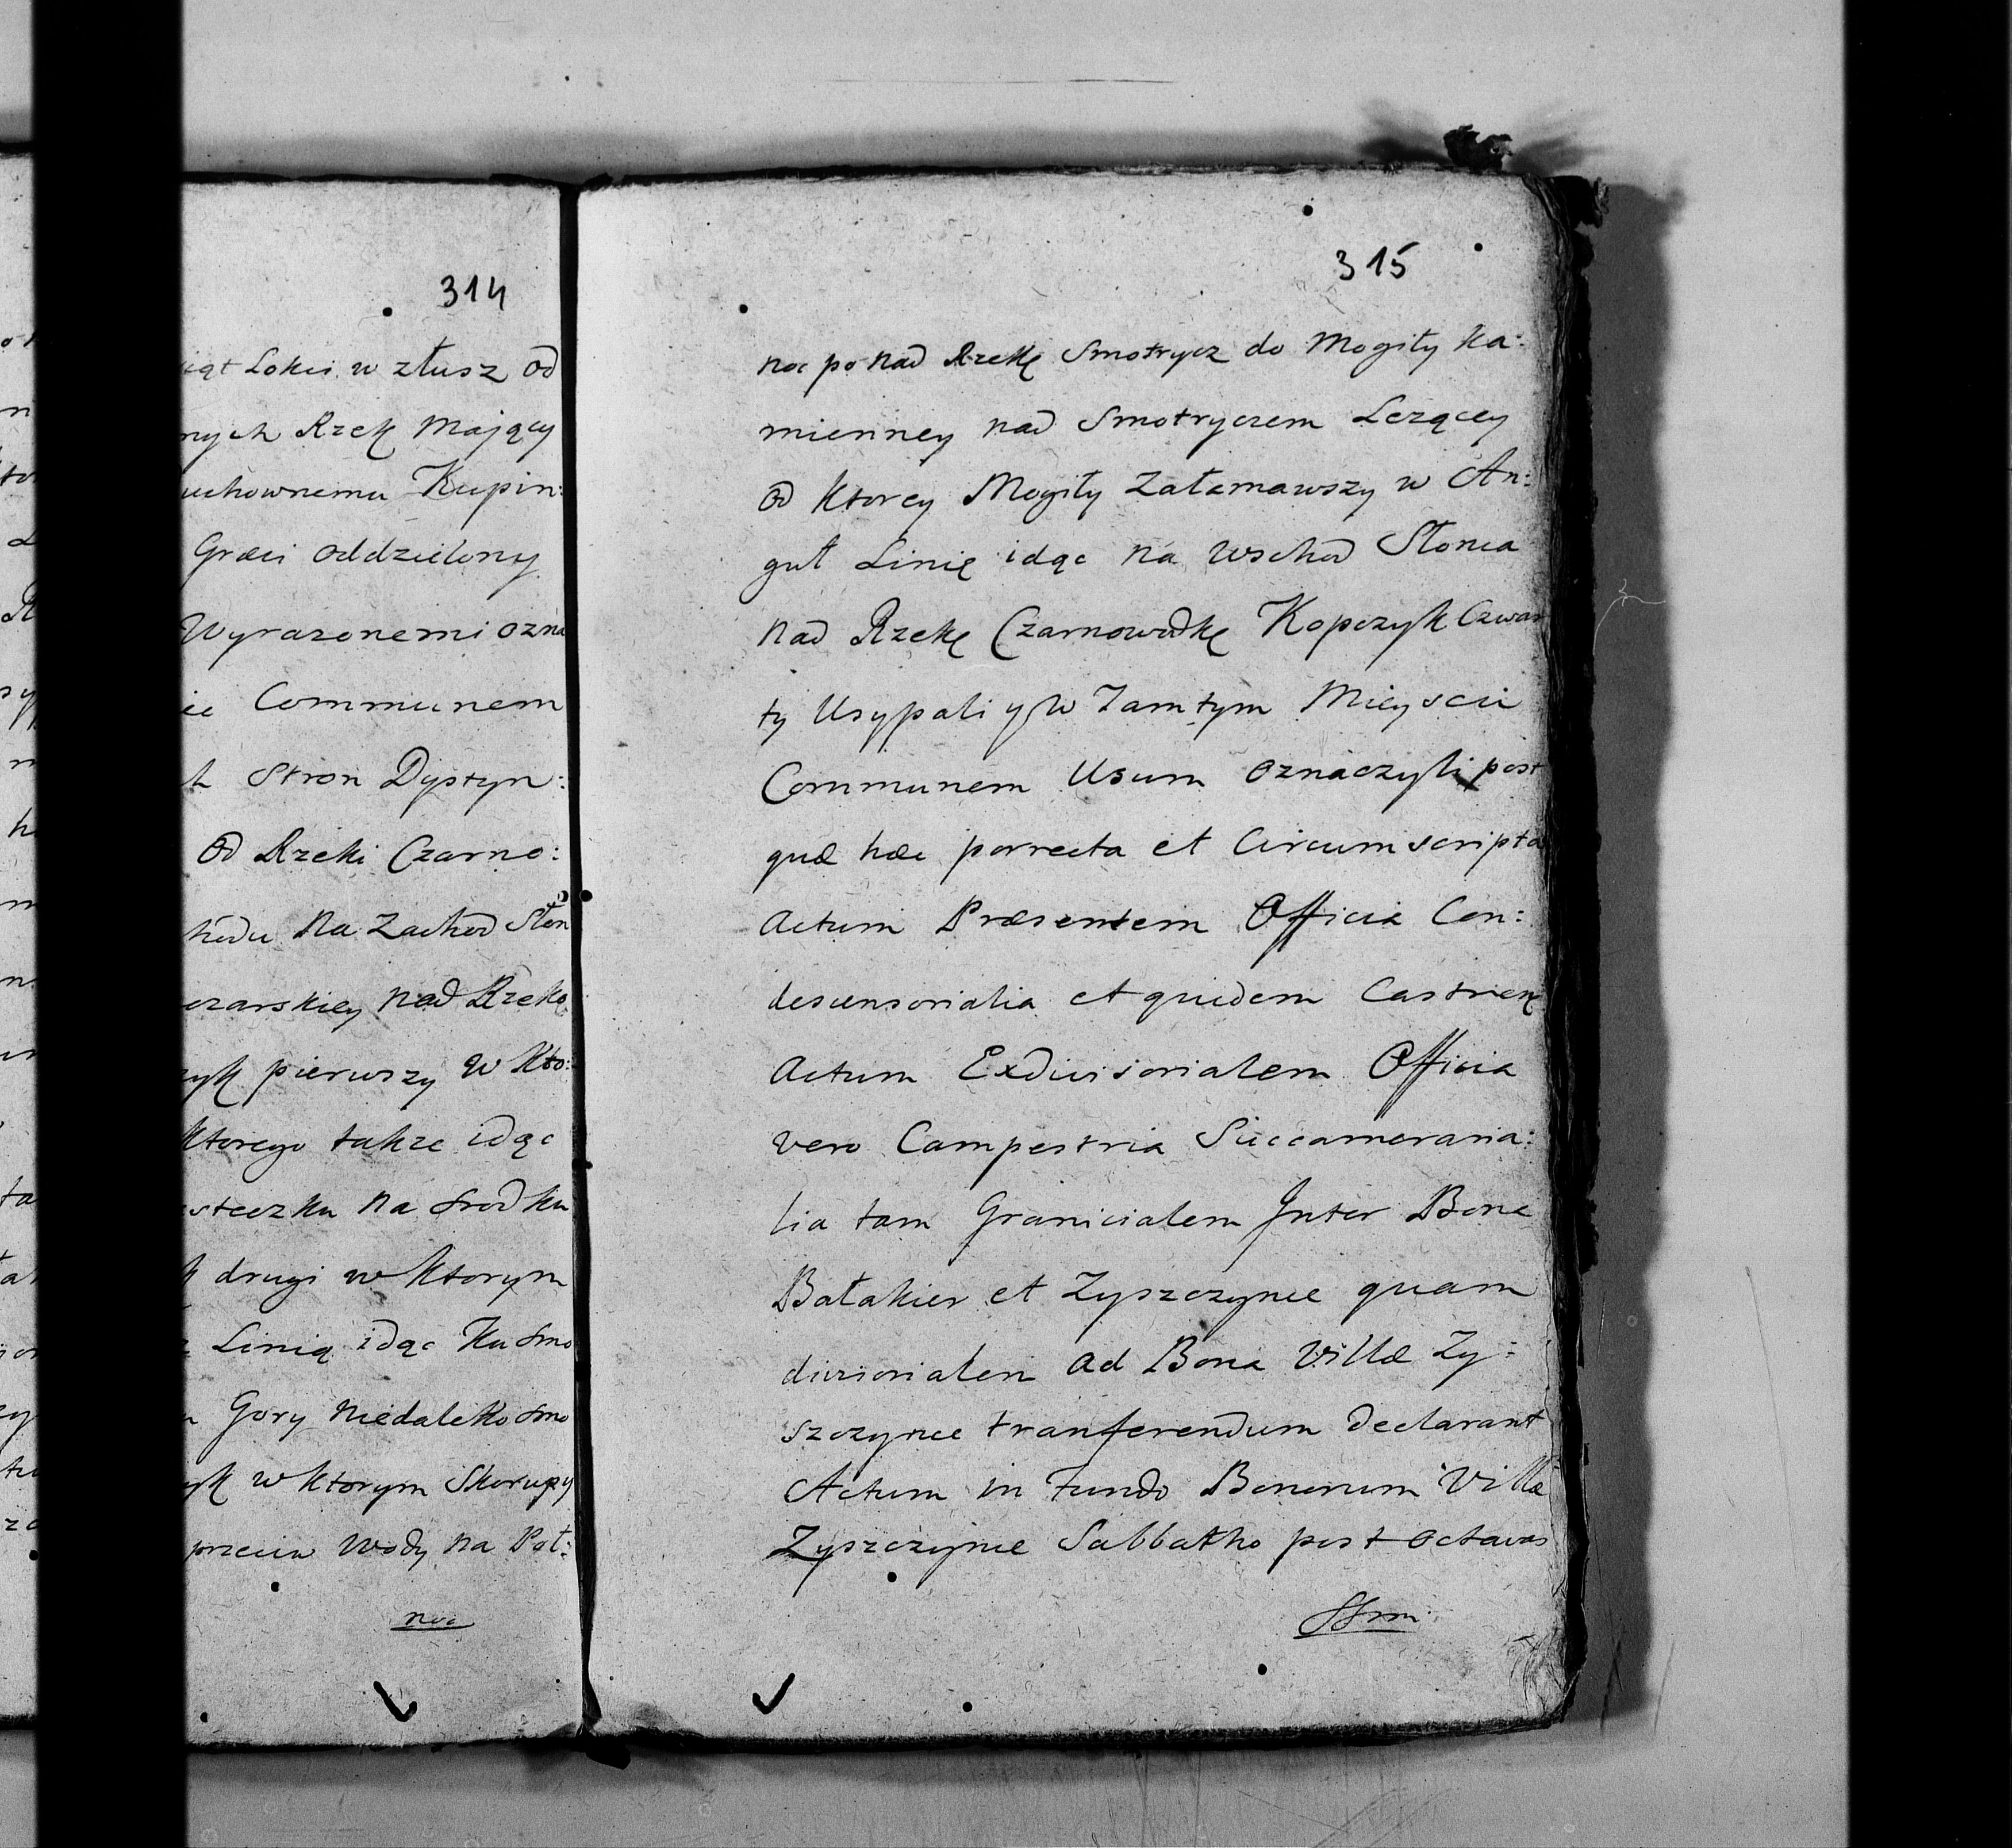 314
Lokci w złusz od
nych Rzek Mający
uchownemu Kupin:
Græci oddzielony
Wyrazonemi ozna
Communem
h Stron Dystyn:
Od Rzeki Czarno:
hodu Na Zachod Słon
czarskiey nad Rzeką
zyk pierwszy w Kto:
Ktorego takze idąc
steczku na srodku
k drugi w Ktorym
Linią idąc Ku Smo
Gory niedaleko Smo
yk w Ktorym Skorupy
przeciw Wody na Poł:
noc
315
noc ponad Rzekę Smotrycz do Mogiły Ka:
mienney nad Smotryczem Lezącey
od Ktorey Mogiły Załamawszy w An:
guł Linię idąc na wschod Słonca
nad Rzekę Czarnowodkę Kopczyk Czwar
ty Usypali y w Tamtym Mieyscu
Communem Usum oznaczyli post
quæ hæc porrecta et Circumscripta
Actum Præsentem Officia Con:
descensorialia et quidem Castren
Actum Exdivisorialem Officia
vero Campestria Succameraria:
lia tam Granicialem Inter Bona
Bałakier et Zyszczynce quam
divisorialem ad Bona Villæ Zy:
szczynce tranferendum declarant
Actum in Fundo Bonorum Villæ
Zyszczynce Sabbatho post Octavas
SSrm: